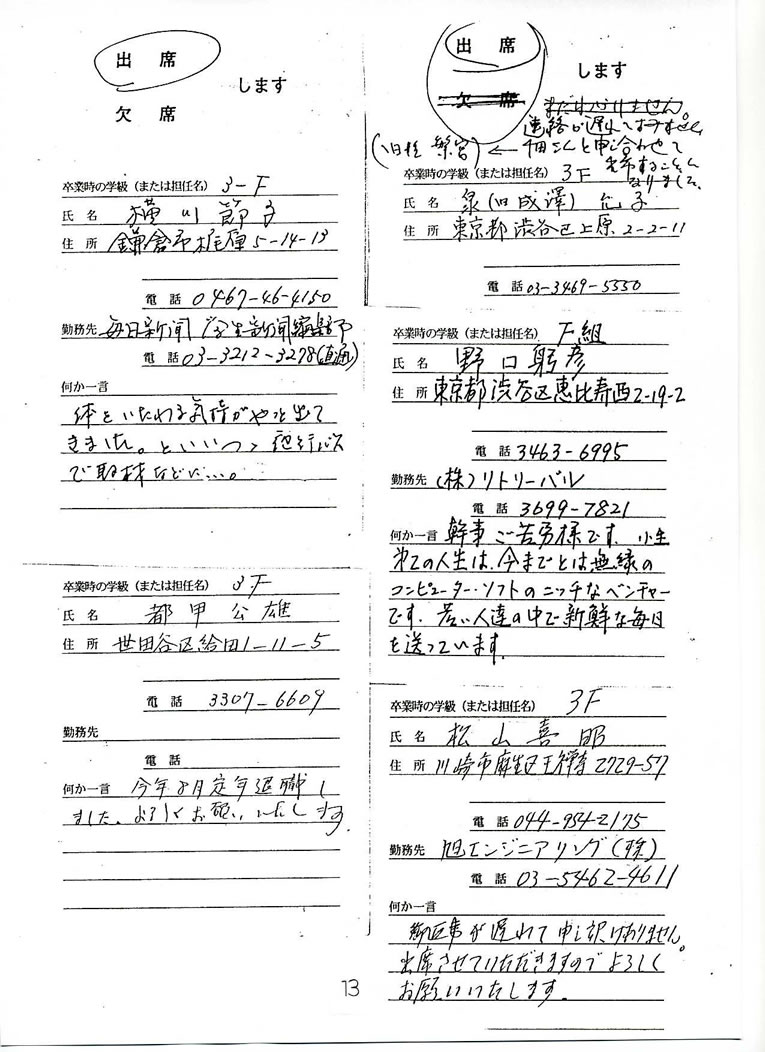 出 席
します
欠 席
卒業時の学級（または担任名） 3-F
氏 名 横川節子
住 所 鎌倉市梶原5-14-13
電 話 0467-46-4150
勤務先 毎日新聞 学生新聞編集部
電 話 03-3212-3278(直通)
何か一言
体をいたわる気持がやっと出て
きました。といいつつ 夜行バス
で取材などに…。
卒業時の学級（または担任名） 3F
氏 名 都甲公雄
住 所 世田谷区給田1-11-5
電 話 3307-6609
勤務先
電 話
何か一言 今年8月定年退職し
ました。よろしくお願いいたします。
出 席
します
欠 席
まだわかりません。
連絡が遅れてすみません
(旧姓 ) ← さんと申し合わせて
出席することに
なりました。
卒業時の学級（または担任名） 3F
氏 名 泉(旧成澤)允子
住 所 東京都渋谷区上原2-2-11
電 話 03-3469-5550
卒業時の学級（または担任名） F組
氏 名 野口躬彦
住 所 東京都渋谷区恵比寿西2-19-2
電 話 3463-6995
勤務先 (株)リトリーバル
電 話 3699-7821
何か一言 幹事ご苦労様です。小生
第2の人生は、今までとは無縁の
コンピューター・ソフトのニッチなベンチャー
です。若い人達の中で新鮮な毎日
を送っています。
卒業時の学級（または担任名） 3F
氏 名 松山喜昭
住 所 川崎市麻生区王禅寺2729-57
電 話 044-954-2175
勤務先 旭エンジニアリング(株)
電 話 03-5462-4611
何か一言
御返事が遅れて申し訳けありません。
出席させていただきますのでよろしく
お願いいたします。
13